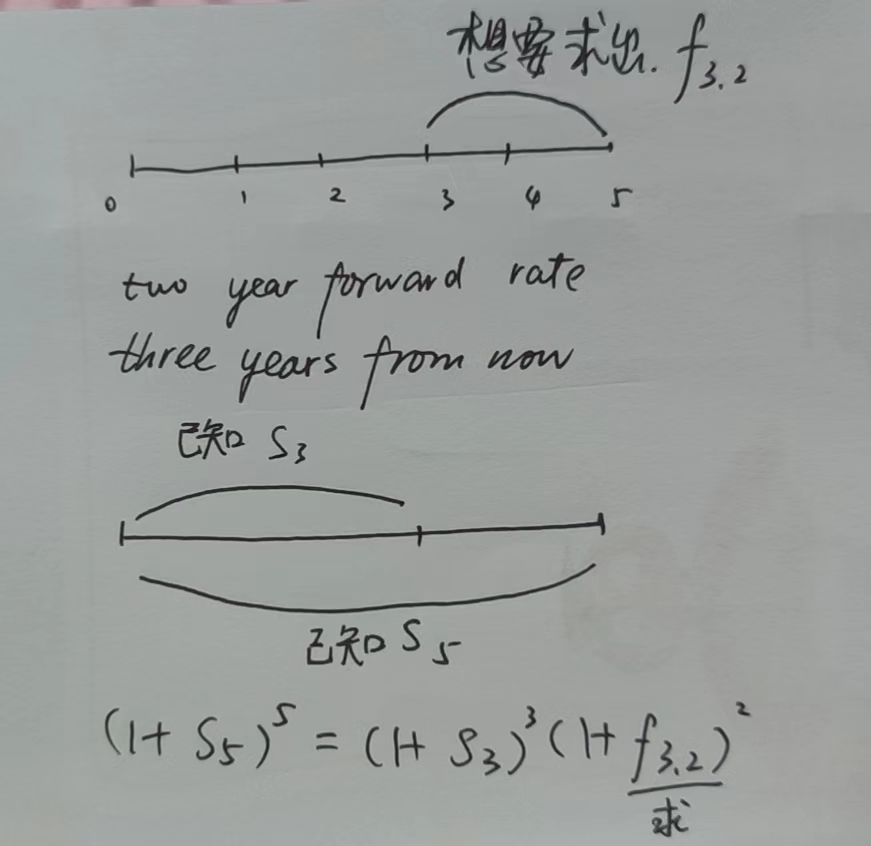 想要求出. f₃.₂
0 1 2 3 4 5
two year forward rate
three years from now
已知 S₃
已知 S₅
(1+ S₅)⁵ = (1+ S₃)³ (1+ f₃.₂)²
求